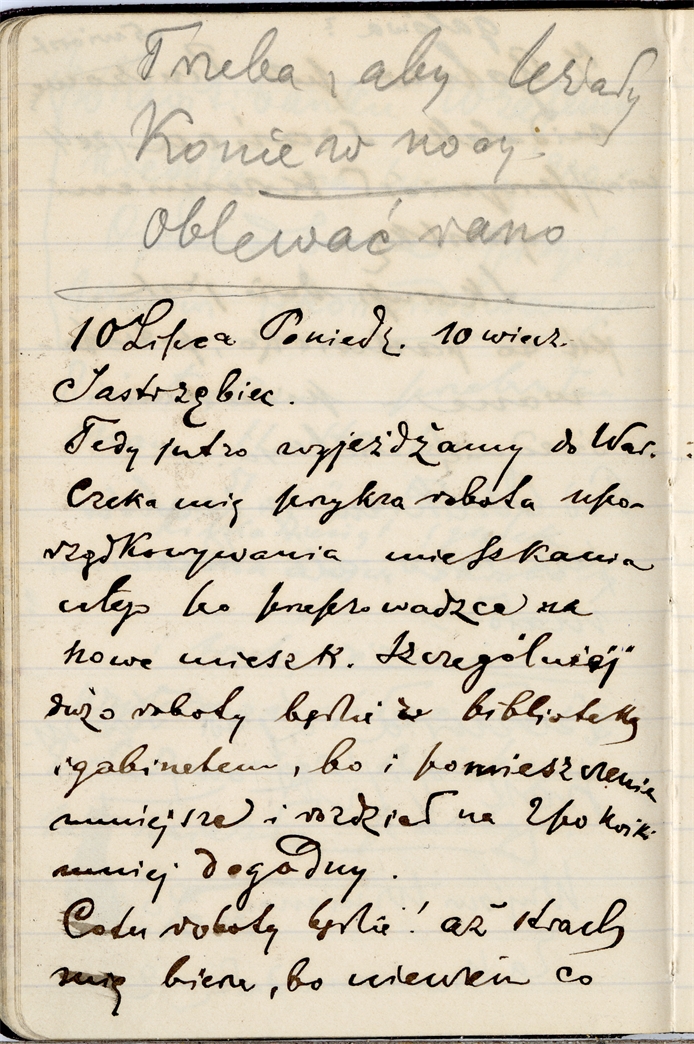 Trzeba, aby leżały
Konie w nocy.
Oblewać rano
10 Lipca Poniedz. 10 wiecz.
Jastrzębiec.
Tedy jutro wyjeżdżamy do War.
Czeka mię przykra robota upo-
rządkowywania mieszkania
całego po przeprowadzce na
nowe mieszk. Szczególniej
dużo roboty będzie z biblioteką
i gabinetem, bo i pomieszczenie
mniejsze i rozdział na 2 pokoiki
mniej dogodny.
Co tu roboty będzie! aż strach
mię bierze, bo niewiem co